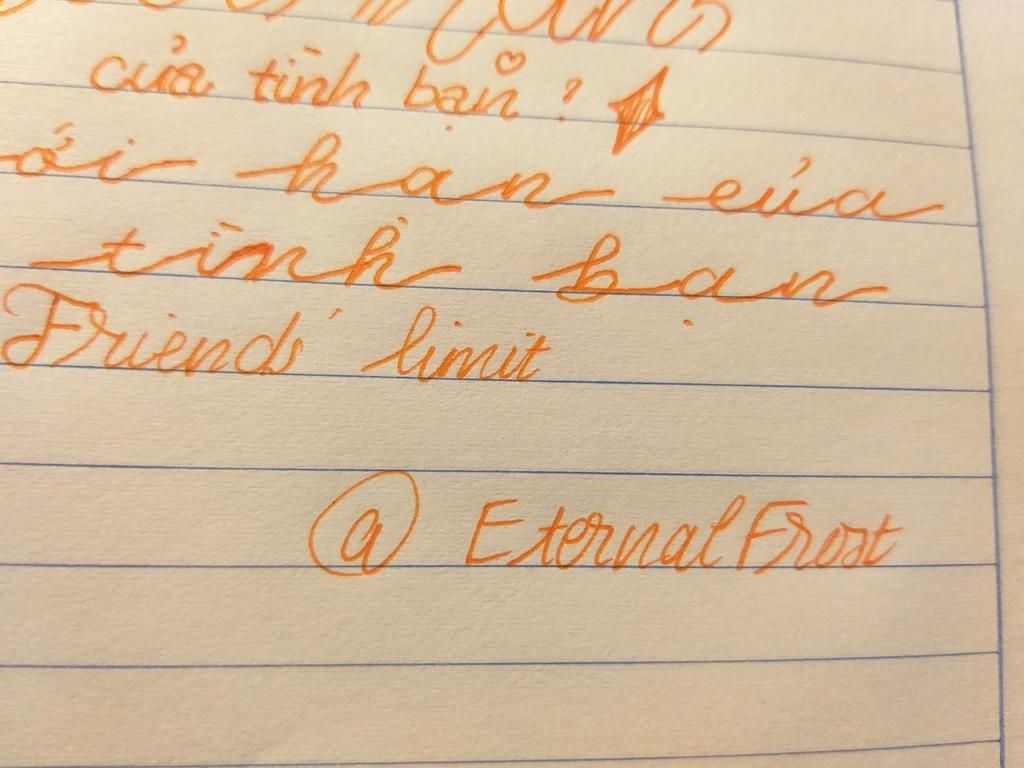 của tình bạn?
ới hạn của
tình bạn
Friends' limit
@EternalFrost